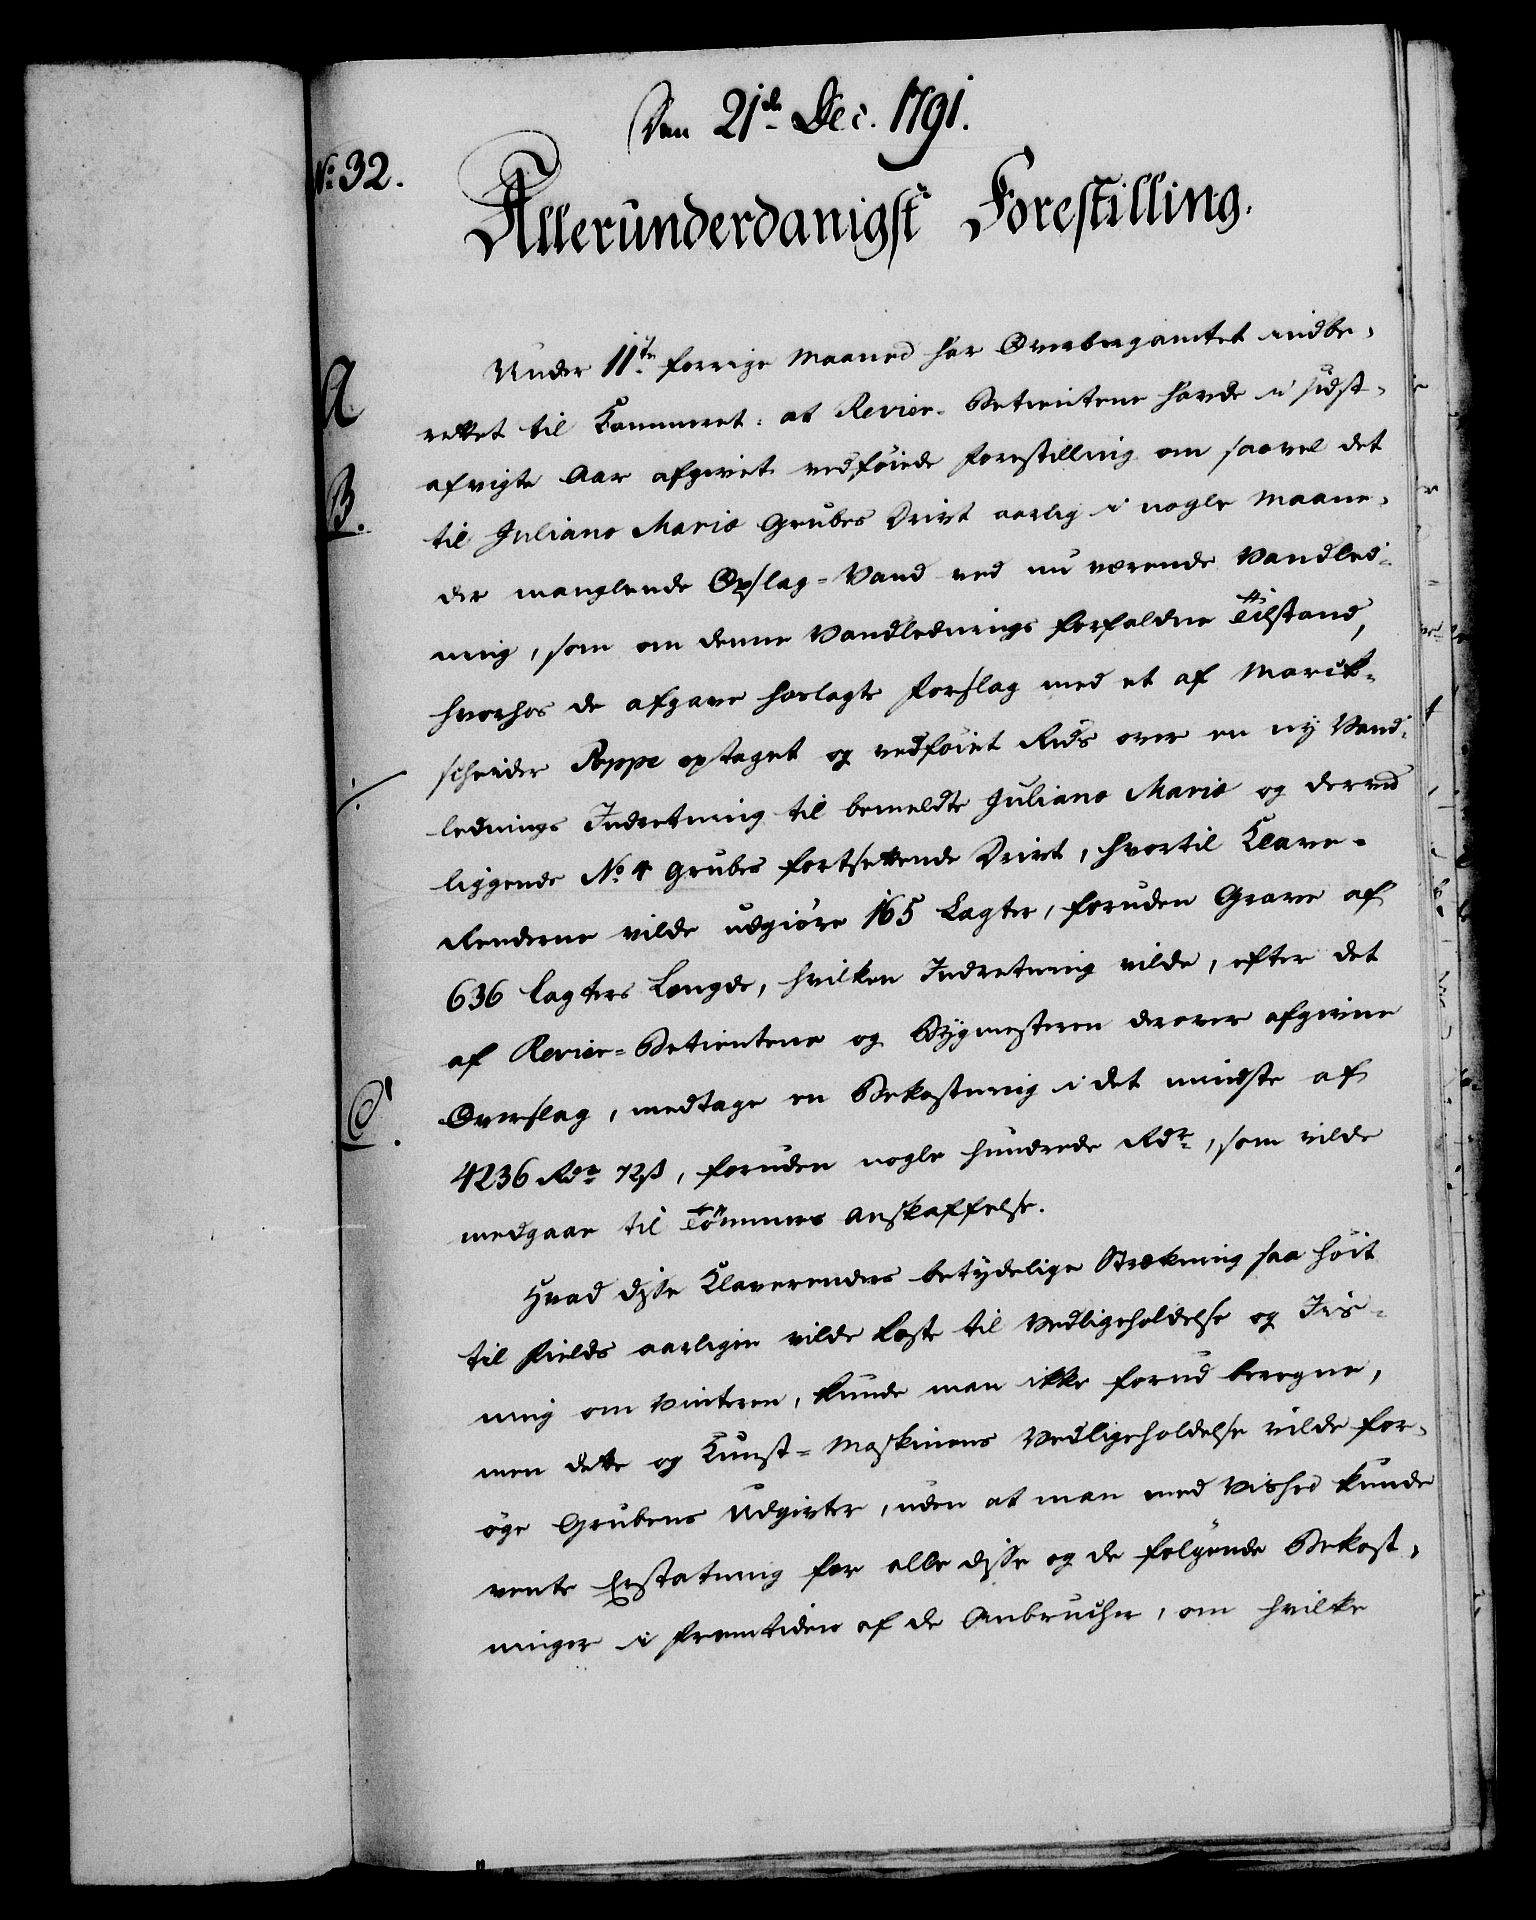 Den 21de Dec. 1791.
No 32.
Allerunderdanigst Forestilling.
Under 11te forrige Maaned har Overbergamtet indbe-
A
rettet til Kammeret: at Revier-Betientene havde i sidst-
afvigte Aar afgivet vedføiede Forestilling om saavel det
B.
til Juliane Maria Grubes Drivt aarlig i nogle Maane-
der manglende Opslag-Vand ved nu værende Vandled-
ning, som om denne Vandlednings forfaldne Tilstand,
hvorhos de afgave hoslagte Forslag med et af Mark-
scheider Poppe optaget og vedføiet Rids over en ny Vand-
./.
lednings Indretning til bemeldte Juliane Maria og derved
liggende No 4 Grubes fortsættende Drivt, hvortil Klave-
Renderne vilde udgiøre 165 Lagter, foruden Grave af
636 Lagters Længde, hvilken Indretning vilde, efter det
af Revier-Betientene og Bygmesteren derover afgivne
C.
Overslag, medtage en Bekostning i det mindste af
4236 Rdr 72 ß, foruden nogle hundrede Rdr, som vilde
medgaae til Tømmers Anskaffelse.
Hvad disse Klaverenders betydelige Strækning saa høit
til Fields aarligen vilde koste til Vedligeholdelse og Iis-
ning om Vinteren, kunde man ikke forud beregne,
men dette og Kunst-Maskinens Vedligeholdelse vilde for-
øge Grubens Udgivter, uden at man med Vished kunde
vente Erstatning for alle disse og de følgende Bekost-
ninger i Fremtiden af de Anbrücher, om hvilke